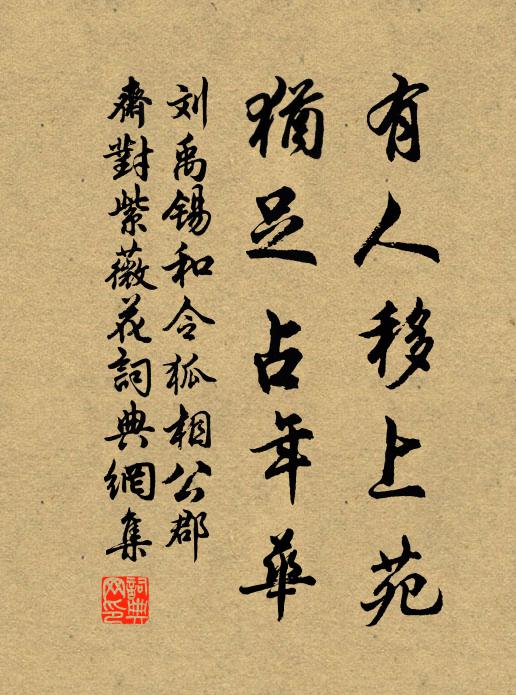 有人移上苑
猶足占年華
刘禹锡和令狐相公郡
齋對紫薇花詞典網集
詞典网印